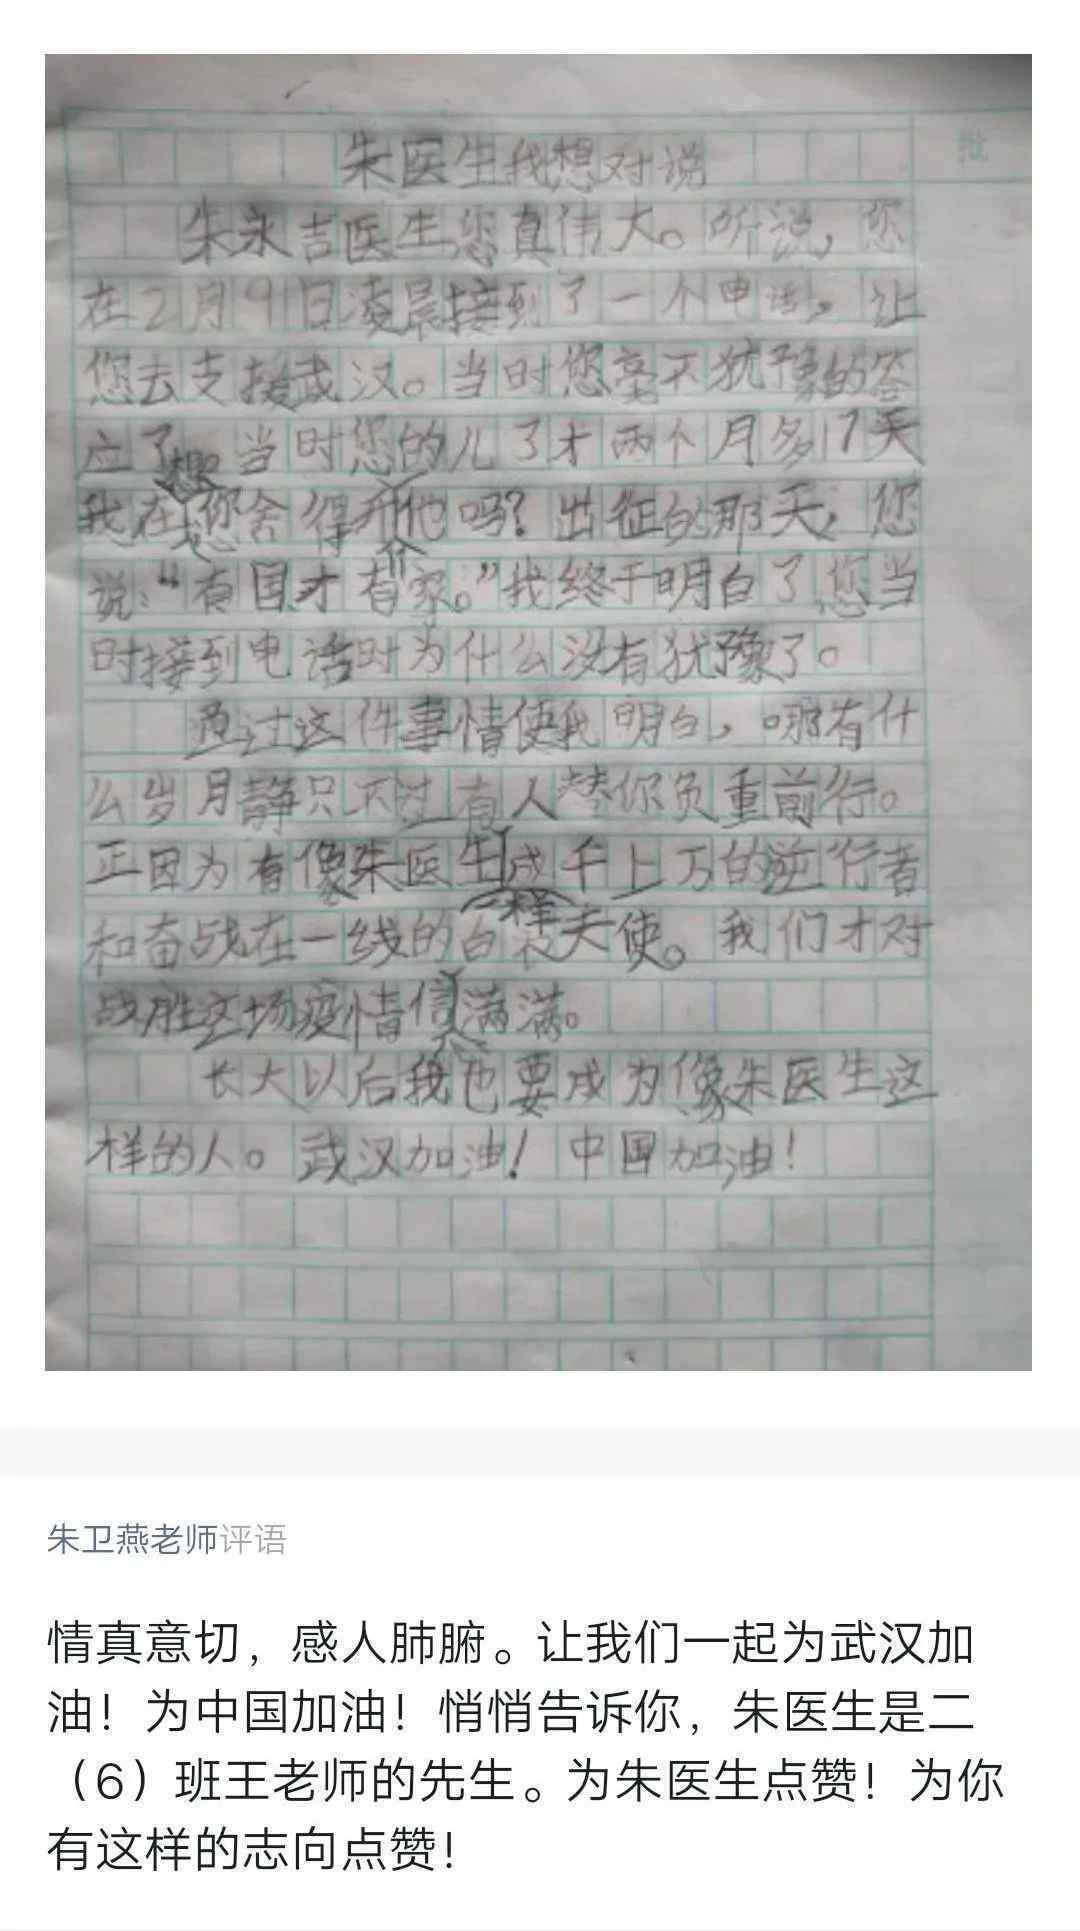 批
朱医生我想对说
朱永吉医生您真伟大。听说，您
在2月9日凌晨接到了一个电话，让
您去支援武汉。当时您毫不犹豫的答
应了。当时您的儿子才两个月多17天
我在想。您舍得离开他吗？出征的那天，您
说：“有国才有家。”我终于明白了您当
时接到电话时为什么没有犹豫了。
通过这件事情使我明白，哪有什
么岁月静只不过有人替你负重前行。
正因为有像朱医生一样成千上万的逆行者
和奋战在一线的白衣天使。我们才对
战胜这场疫情信心满满。
长大以后我也要成为像朱医生这
样的人。武汉加油！中国加油！
朱卫燕老师评语
情真意切，感人肺腑。让我们一起为武汉加
油！为中国加油！悄悄告诉你，朱医生是二
（6）班王老师的先生。为朱医生点赞！为你
有这样的志向点赞！